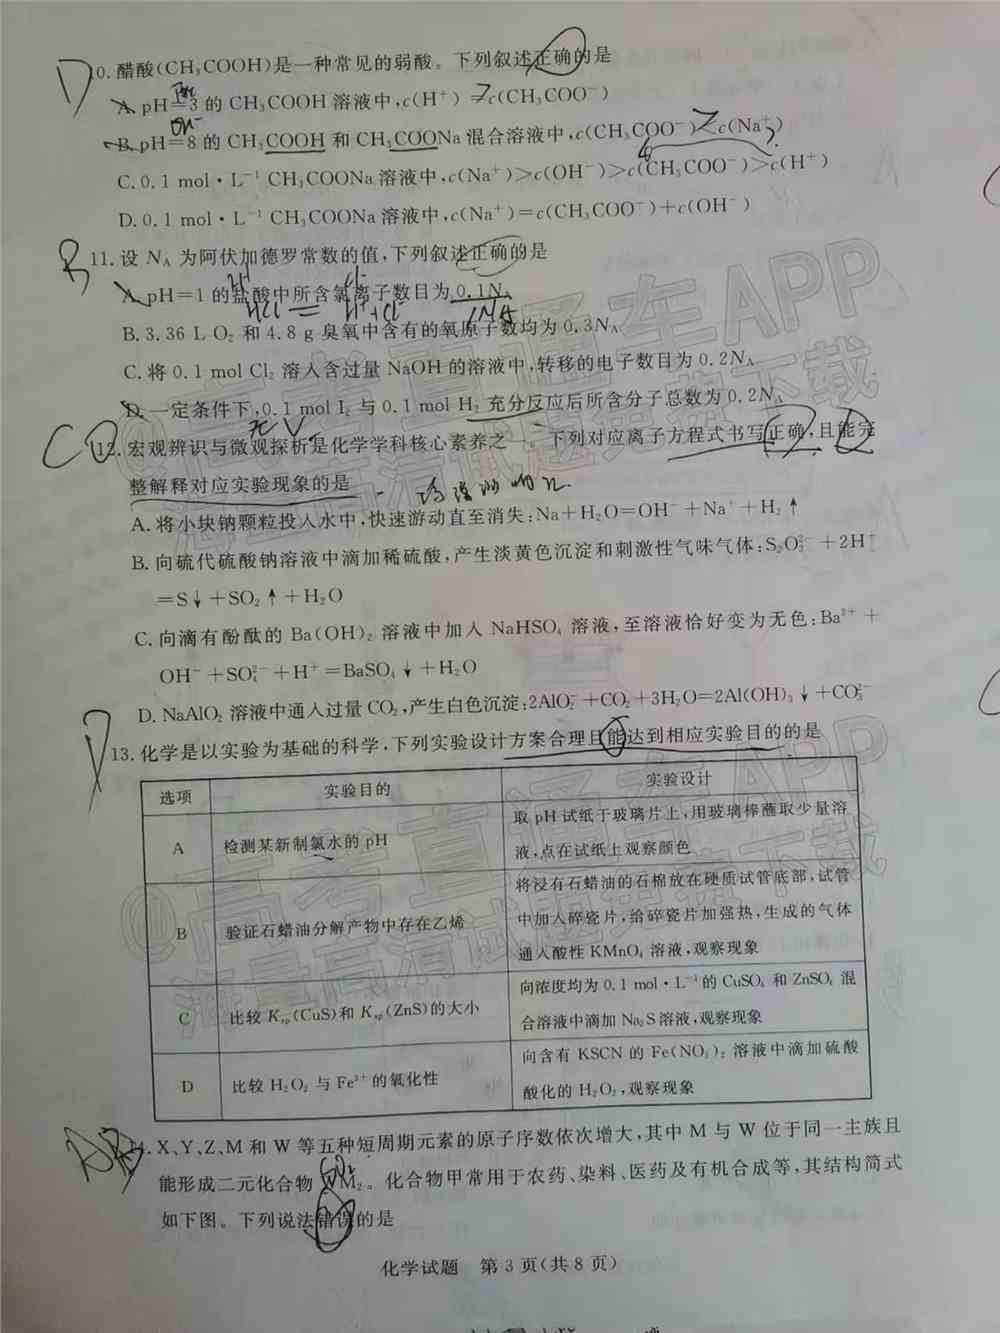 10.醋酸(CH₃COOH)是一种常见的弱酸。下列叙述正确的是
A.pH=3的CH₃COOH溶液中,c(H⁺)=c(CH₃COO⁻)
B.pH=8的CH₃COOH和CH₃COONa混合溶液中,c(CH₃COO⁻)>c(Na⁺)
C.0.1 mol·L⁻¹ CH₃COONa溶液中,c(Na⁺)>c(OH⁻)>c(CH₃COO⁻)>c(H⁺)
D.0.1 mol·L⁻¹ CH₃COONa溶液中,c(Na⁺)=c(CH₃COO⁻)+c(OH⁻)
11.设 Nᴀ 为阿伏加德罗常数的值,下列叙述正确的是
A.pH=1的盐酸中所含氯离子数目为0.1Nᴀ
B.3.36 L O₂ 和4.8 g 臭氧中含有的氧原子数均为0.3Nᴀ
C.将0.1 mol Cl₂ 溶入含过量 NaOH 的溶液中,转移的电子数目为0.2Nᴀ
D.一定条件下,0.1 mol I₂ 与0.1 mol H₂ 充分反应后所含分子总数为0.2Nᴀ
12.宏观辨识与微观探析是化学学科核心素养之一。下列对应离子方程式书写正确,且能完
整解释对应实验现象的是
A.将小块钠颗粒投入水中,快速游动直至消失:Na+H₂O=OH⁻+Na⁺+H₂↑
B.向硫代硫酸钠溶液中滴加稀硫酸,产生淡黄色沉淀和刺激性气味气体:S₂O₃²⁻+2H⁺
=S↓+SO₂↑+H₂O
C.向滴有酚酞的 Ba(OH)₂ 溶液中加入 NaHSO₄ 溶液,至溶液恰好变为无色:Ba²⁺+
OH⁻+SO₄²⁻+H⁺=BaSO₄↓+H₂O
D.NaAlO₂ 溶液中通入过量 CO₂,产生白色沉淀:2AlO₂⁻+CO₂+3H₂O=2Al(OH)₃↓+CO₃²⁻
13.化学是以实验为基础的科学,下列实验设计方案合理且能达到相应实验目的的是
选项 实验目的 实验设计
A 检测某新制氯水的 pH 取 pH 试纸于玻璃片上,用玻璃棒蘸取少量溶
液,点在试纸上观察颜色
B 验证石蜡油分解产物中存在乙烯 将浸有石蜡油的石棉放在硬质试管底部,试管
中加入碎瓷片,给碎瓷片加强热,生成的气体
通入酸性 KMnO₄ 溶液,观察现象
C 比较 Kₛₚ(CuS)和 Kₛₚ(ZnS)的大小 向浓度均为0.1 mol·L⁻¹的 CuSO₄ 和 ZnSO₄ 混
合溶液中滴加 Na₂S 溶液,观察现象
D 比较 H₂O₂ 与 Fe³⁺的氧化性 向含有 KSCN 的 Fe(NO₃)₂ 溶液中滴加硫酸
酸化的 H₂O₂,观察现象
14.X、Y、Z、M 和 W 等五种短周期元素的原子序数依次增大,其中 M 与 W 位于同一主族且
能形成二元化合物 WM₂。化合物甲常用于农药、染料、医药及有机合成等,其结构简式
如下图。下列说法错误的是
化学试题 第3页(共8页)
@高考直通车APP
海量高清试题免费下载
@高考直通车APP
海量高清试题免费下载